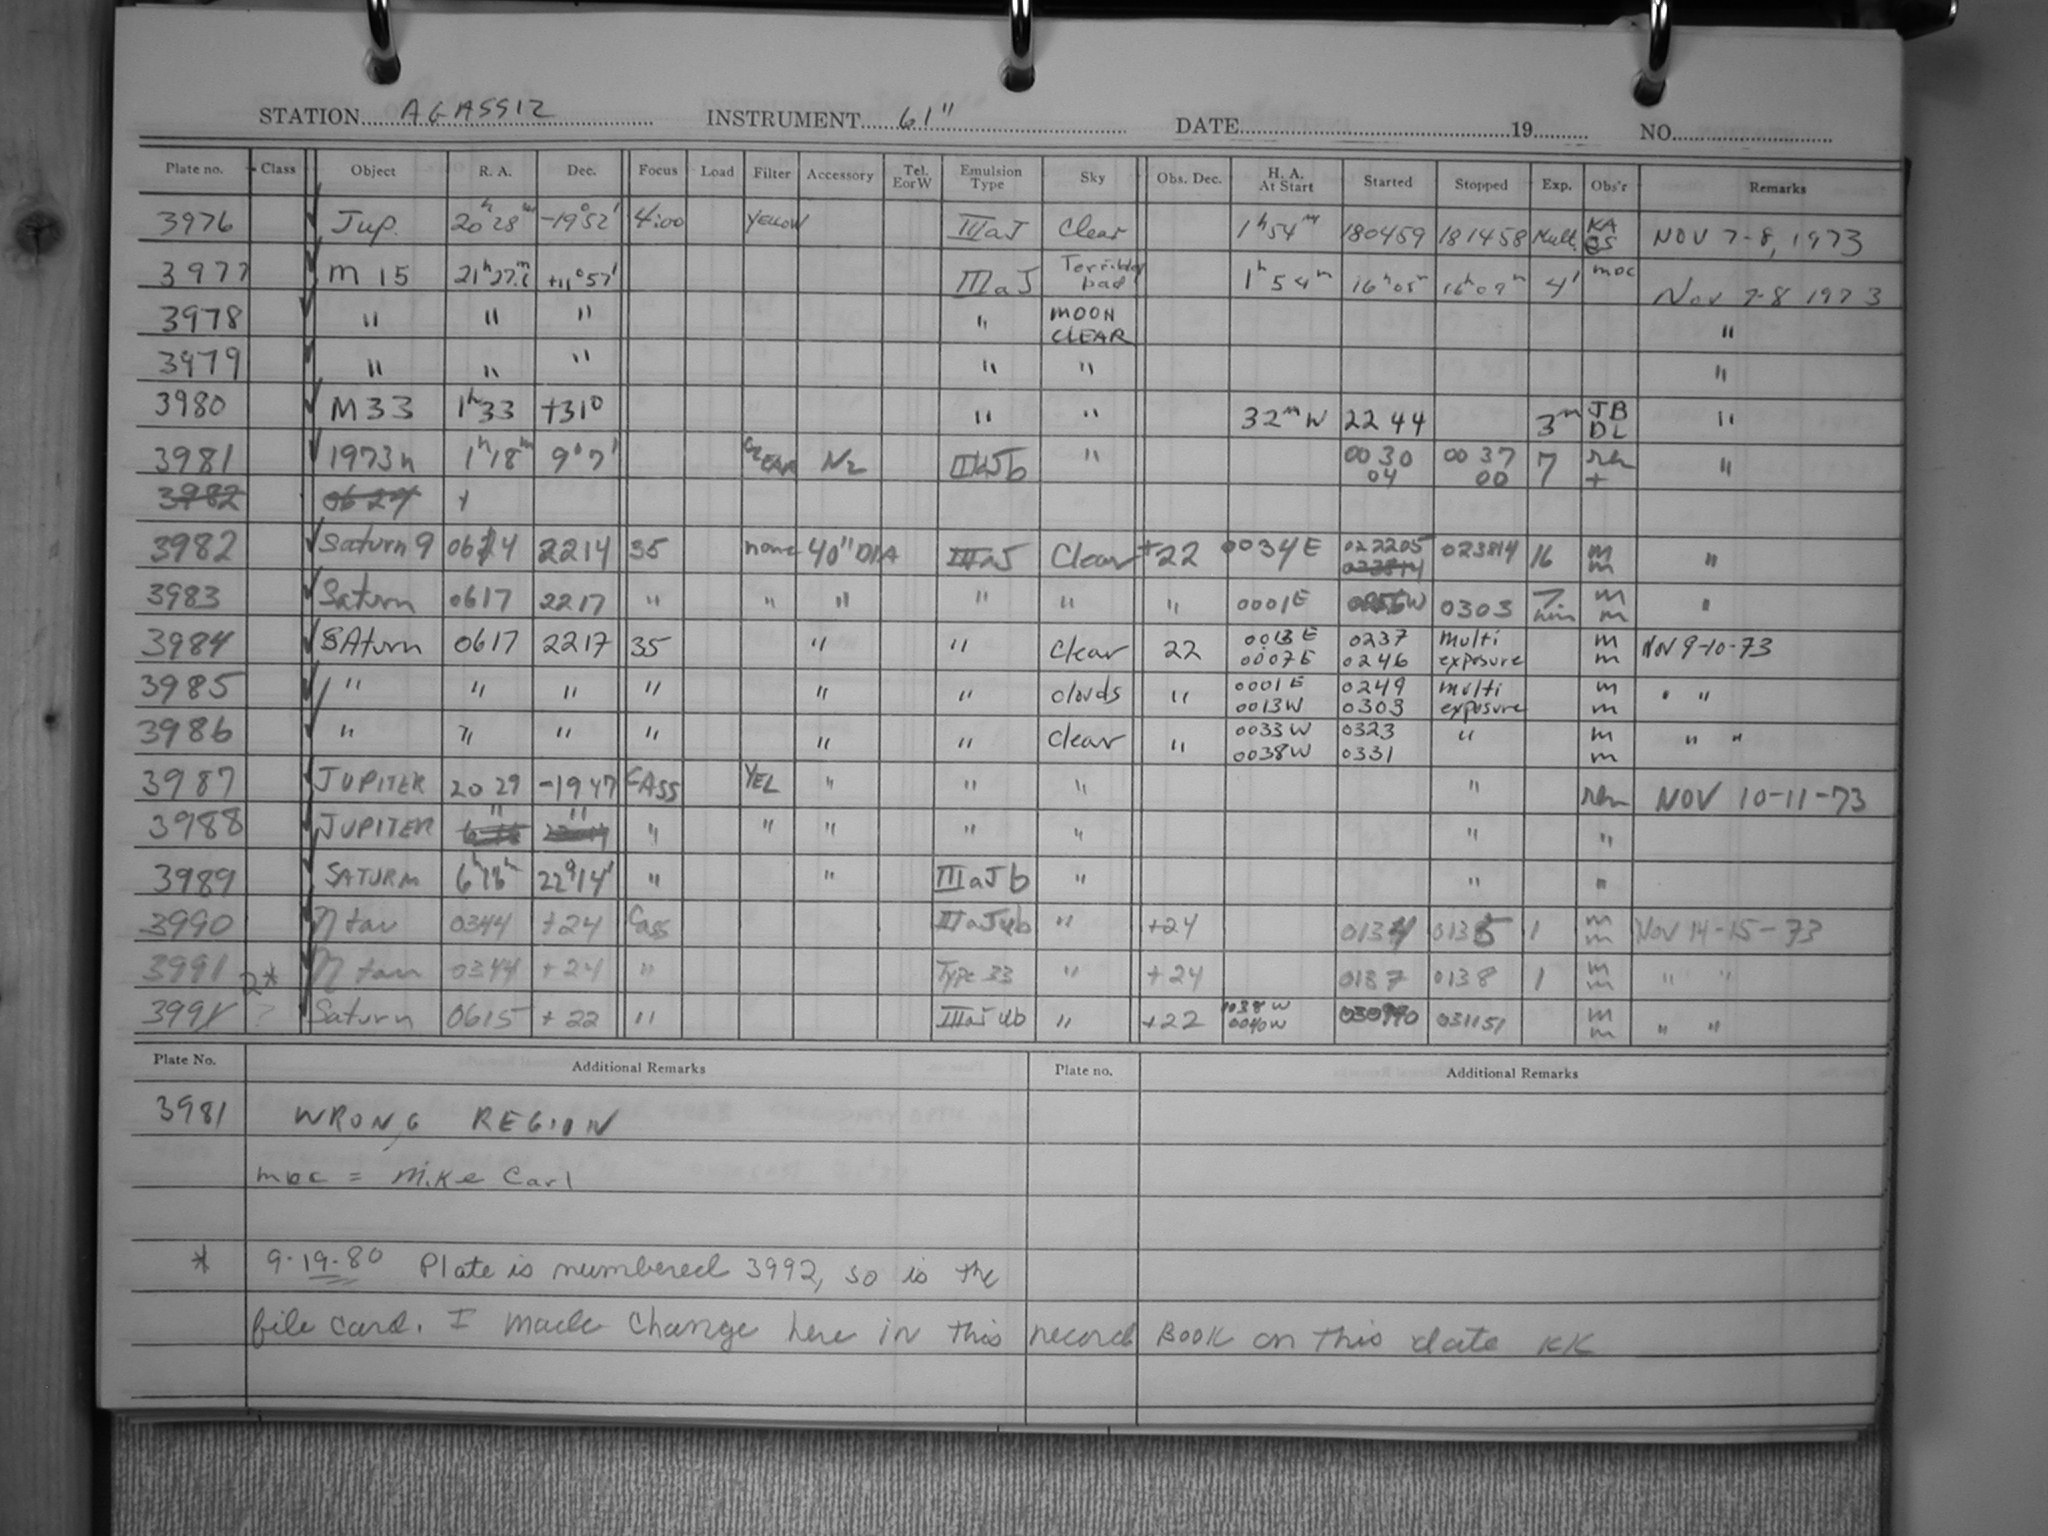 STATION AGASSIZ INSTRUMENT 61" DATE 19 NO.
Plate no. Class Object R. A. Dec. Focus Load Filter Accessory Tel. E or W Emulsion Type Sky Obs. Dec. H. A. At Start Started Stopped Exp. Obs'r Remarks
3976 Jup. 20h 28m -19°52' 4:00 YELLOW IIIaJ Clear 1h54m 180459 181458 Mult. KA NOV 7-8, 1973
3977 M 15 21h 27m +11°57' IIIaJ Terribly bad! 1h54m 16h05m 16h09m 4' moc Nov 7-8 1973
3978 " " " " MOON CLEAR "
3979 " " " " " "
3980 M33 1h33 +31° " " 32m W 2244 3m JB DL "
3981 1973n 1h18m 9°7' CLEAR N2 " 0030 04 0037 00 7 "
3982 0624
3982 Saturn 9 0614 2214 35 none 40" DIA IIIaJ Clear +22 0034E 022205 023814 023814 16 m m "
3983 Saturn 0617 2217 " " " " " " 0001E 0303 7 min m m "
3984 SAturn 0617 2217 35 " " clear 22 0013E 0007E 0237 0246 multi exposure m m Nov 9-10-73
3985 " " " " " " clouds " 0001E 0013W 0249 0303 multi exposure m m " "
3986 " " " " " " clear " 0033W 0038W 0323 0331 " m m " "
3987 JUPITER 20 29 -19 47 CASS YEL " " " " NOV 10-11-73
3988 JUPITER " " " " " " " " "
3989 SATURN 6h18m 22°14' " " IIIaJb " " "
3990 η tau 0344 +24 Cass " +24 0134 0135 1 m m Nov 14-15-73
3991 η tau 0344 +24 " Type 33 " +24 0137 0138 1 m m " "
3991 2* ? Saturn 0615 +22 " " +22 0038W 0040W 031151 m m " "
Plate No. Additional Remarks Plate no. Additional Remarks
3981 WRONG REGION
moc = Mike Carl
* 9-19-80 Plate is numbered 3992, so is the
file card. I made change here in this record BOOK on this date KK